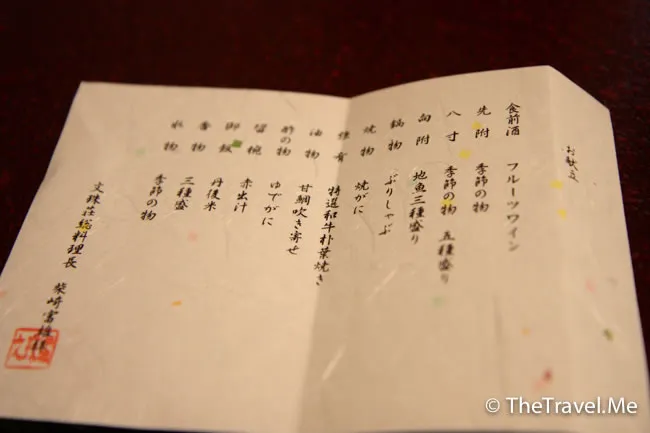 お献立
食前酒 フルーツワイン
先附 季節の物
八寸 季節の物 五種盛り
向附 地魚三種盛り
鍋物 ぶりしゃぶ
焼物 焼がに
特選和牛朴葉焼き
油物 甘鯛吹き寄せ
酢の物 ゆでがに
留椀 赤出汁
御飯 丹後米
香物 三種盛
水物 季節の物
文珠荘総料理長 柴崎富雄
© TheTravel.Me